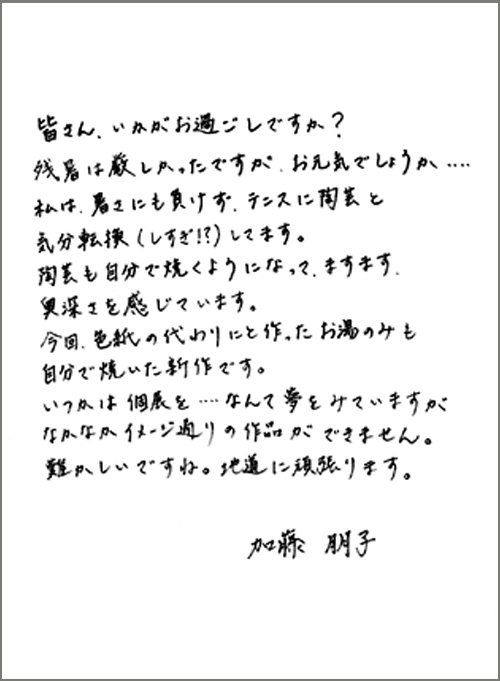 皆さん、いかがお過ごしですか？
残暑は厳しかったですが、お元気でしょうか‥‥
私は、暑さにも負けず、テニスに陶芸と
気分転換（しすぎ!?）してます。
陶芸も自分で焼くようになって、ますます、
奥深さを感じています。
今回、色紙の代わりにと作ったお湯のみも
自分で焼いた新作です。
いつかは個展を‥‥なんて夢をみていますが
なかなかイメージ通りの作品ができません。
難かしいですね。地道に頑張ります。
加藤 朋子